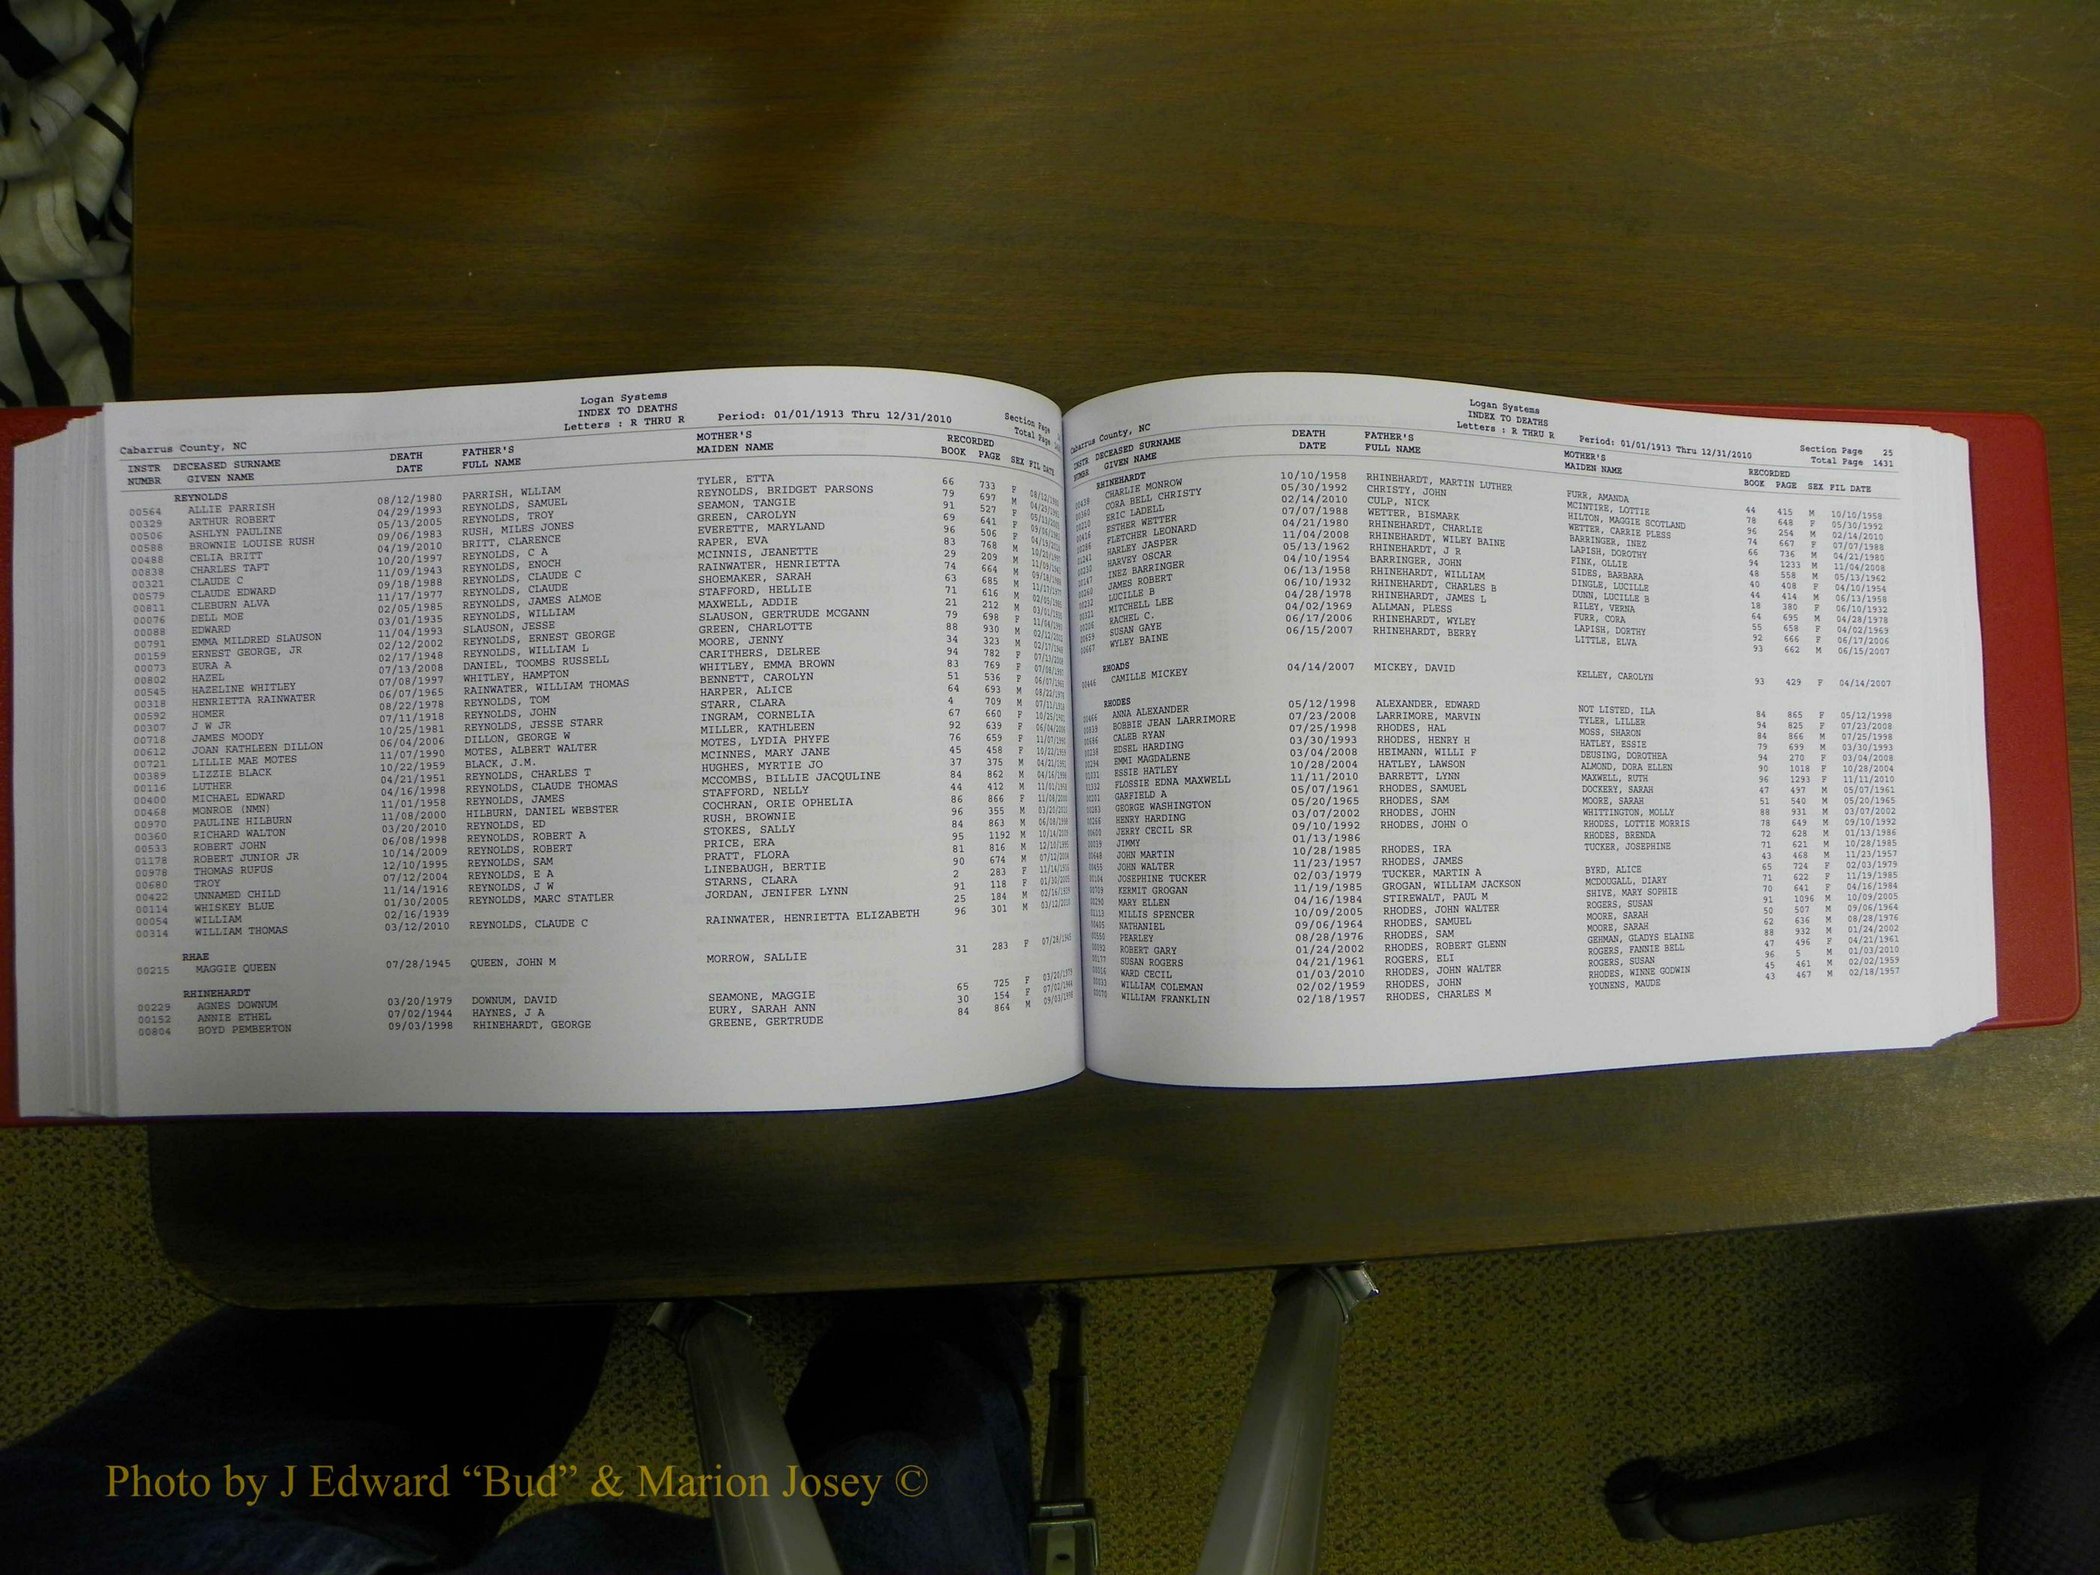 Logan Systems
INDEX TO DEATHS
Letters : R THRU R Period: 01/01/1913 Thru 12/31/2010
Section Page
Cabarrus County, NC Total Page
INSTR DECEASED SURNAME DEATH FATHER'S MOTHER'S RECORDED
NUMBR GIVEN NAME DATE FULL NAME MAIDEN NAME BOOK PAGE SEX FIL DATE
REYNOLDS
00564 ALLIE PARRISH 08/12/1980 PARRISH, WLLIAM TYLER, ETTA 66 733 F
00329 ARTHUR ROBERT 04/29/1993 REYNOLDS, SAMUEL REYNOLDS, BRIDGET PARSONS 79 697 M
00506 ASHLYN PAULINE 05/13/2005 REYNOLDS, TROY SEAMON, TANGIE 91 527 F
00588 BROWNIE LOUISE RUSH 09/06/1983 RUSH, MILES JONES GREEN, CAROLYN 69 641 F
00488 CELIA BRITT 04/19/2010 BRITT, CLARENCE EVERETTE, MARYLAND 96 506 F
00838 CHARLES TAFT 10/20/1997 REYNOLDS, C A RAPER, EVA 83 768 M
00321 CLAUDE C 11/09/1943 REYNOLDS, ENOCH MCINNIS, JEANETTE 29 209 M
00579 CLAUDE EDWARD 09/18/1988 REYNOLDS, CLAUDE C RAINWATER, HENRIETTA 74 664 M
00811 CLEBURN ALVA 11/17/1977 REYNOLDS, CLAUDE SHOEMAKER, SARAH 63 685 M
00076 DELL MOE 02/05/1985 REYNOLDS, JAMES ALMOE STAFFORD, HELLIE 71 616 M
00088 EDWARD 03/01/1935 REYNOLDS, WILLIAM MAXWELL, ADDIE 21 212 M
00791 EMMA MILDRED SLAUSON 11/04/1993 SLAUSON, JESSE SLAUSON, GERTRUDE MCGANN 79 698 F
00159 ERNEST GEORGE, JR 02/12/2002 REYNOLDS, ERNEST GEORGE GREEN, CHARLOTTE 88 930 M
00073 EURA A 02/17/1948 REYNOLDS, WILLIAM L MOORE, JENNY 34 323 M
00802 HAZEL 07/13/2008 DANIEL, TOOMBS RUSSELL CARITHERS, DELREE 94 782 F
00545 HAZELINE WHITLEY 07/08/1997 WHITLEY, HAMPTON WHITLEY, EMMA BROWN 83 769 F
00318 HENRIETTA RAINWATER 06/07/1965 RAINWATER, WILLIAM THOMAS BENNETT, CAROLYN 51 536 F
00592 HOMER 08/22/1978 REYNOLDS, TOM HARPER, ALICE 64 693 M
00307 J W JR 07/11/1918 REYNOLDS, JOHN STARR, CLARA 4 709 M
00718 JAMES MOODY 10/25/1981 REYNOLDS, JESSE STARR INGRAM, CORNELIA 67 660 F
00612 JOAN KATHLEEN DILLON 06/04/2006 DILLON, GEORGE W MILLER, KATHLEEN 92 639 F
00721 LILLIE MAE MOTES 11/07/1990 MOTES, ALBERT WALTER MOTES, LYDIA PHYFE 76 659 F
00389 LIZZIE BLACK 10/22/1959 BLACK, J.M. MCINNES, MARY JANE 45 458 F
00116 LUTHER 04/21/1951 REYNOLDS, CHARLES T HUGHES, MYRTIE JO 37 375 M
00400 MICHAEL EDWARD 04/16/1998 REYNOLDS, CLAUDE THOMAS MCCOMBS, BILLIE JACQULINE 84 862 M
00468 MONROE (NMN) 11/01/1958 REYNOLDS, JAMES STAFFORD, NELLY 44 412 M
00970 PAULINE HILBURN 11/08/2000 HILBURN, DANIEL WEBSTER COCHRAN, ORIE OPHELIA 86 866 F
00360 RICHARD WALTON 03/20/2010 REYNOLDS, ED RUSH, BROWNIE 96 355 M
00533 ROBERT JOHN 06/08/1998 REYNOLDS, ROBERT A STOKES, SALLY 84 863 M
01178 ROBERT JUNIOR JR 10/14/2009 REYNOLDS, ROBERT PRICE, ERA 95 1192 M
00978 THOMAS RUFUS 12/10/1995 REYNOLDS, SAM PRATT, FLORA 81 816 M
00680 TROY 07/12/2004 REYNOLDS, E A LINEBAUGH, BERTIE 90 674 M
00422 UNNAMED CHILD 11/14/1916 REYNOLDS, J W STARNS, CLARA 2 283 F
00114 WHISKEY BLUE 01/30/2005 REYNOLDS, MARC STATLER JORDAN, JENIFER LYNN 91 118 F
00054 WILLIAM 02/16/1939 25 184 M
00314 WILLIAM THOMAS 03/12/2010 REYNOLDS, CLAUDE C RAINWATER, HENRIETTA ELIZABETH 96 301 M
RHAE
00215 MAGGIE QUEEN 07/28/1945 QUEEN, JOHN M MORROW, SALLIE 31 283 F 07/28/1945
RHINEHARDT
00229 AGNES DOWNUM 03/20/1979 DOWNUM, DAVID SEAMONE, MAGGIE 65 725 F 03/20/1979
00152 ANNIE ETHEL 07/02/1944 HAYNES, J A EURY, SARAH ANN 30 154 F 07/02/1944
00804 BOYD PEMBERTON 09/03/1998 RHINEHARDT, GEORGE GREENE, GERTRUDE 84 864 M 09/03/1998
Logan Systems
INDEX TO DEATHS
Letters : R THRU R Period: 01/01/1913 Thru 12/31/2010
Section Page 25
Cabarrus County, NC Total Page 1431
INSTR DECEASED SURNAME DEATH FATHER'S MOTHER'S RECORDED
NUMBR GIVEN NAME DATE FULL NAME MAIDEN NAME BOOK PAGE SEX FIL DATE
RHINEHARDT
00438 CHARLIE MONROW 10/10/1958 RHINEHARDT, MARTIN LUTHER FURR, AMANDA 44 415 M 10/10/1958
00360 CORA BELL CHRISTY 05/30/1992 CHRISTY, JOHN MCINTIRE, LOTTIE 78 648 F 05/30/1992
00210 ERIC LADELL 02/14/2010 CULP, NICK HILTON, MAGGIE SCOTLAND 96 254 M 02/14/2010
00416 ESTHER WETTER 07/07/1988 WETTER, BISMARK WETTER, CARRIE PLESS 74 667 F 07/07/1988
00286 FLETCHER LEONARD 04/21/1980 RHINEHARDT, CHARLIE BARRINGER, INEZ 66 736 M 04/21/1980
01241 HARLEY JASPER 11/04/2008 RHINEHARDT, WILEY BAINE LAPISH, DOROTHY 94 1233 M 11/04/2008
00230 HARVEY OSCAR 05/13/1962 RHINEHARDT, J R FINK, OLLIE 48 558 M 05/13/1962
00147 INEZ BARRINGER 04/10/1954 BARRINGER, JOHN SIDES, BARBARA 40 408 F 04/10/1954
00260 JAMES ROBERT 06/13/1958 RHINEHARDT, WILLIAM DINGLE, LUCILLE 44 414 M 06/13/1958
00232 LUCILLE B 06/10/1932 RHINEHARDT, CHARLES B DUNN, LUCILLE B 18 380 F 06/10/1932
00321 MITCHELL LEE 04/28/1978 RHINEHARDT, JAMES L RILEY, VERNA 64 695 M 04/28/1978
00206 RACHEL C. 04/02/1969 ALLMAN, PLESS FURR, CORA 55 658 F 04/02/1969
00659 SUSAN GAYE 06/17/2006 RHINEHARDT, WYLEY LAPISH, DORTHY 92 666 F 06/17/2006
00667 WYLEY BAINE 06/15/2007 RHINEHARDT, BERRY LITTLE, ELVA 93 662 M 06/15/2007
RHOADS
00446 CAMILLE MICKEY 04/14/2007 MICKEY, DAVID KELLEY, CAROLYN 93 429 F 04/14/2007
RHODES
00466 ANNA ALEXANDER 05/12/1998 ALEXANDER, EDWARD NOT LISTED, ILA 84 865 F 05/12/1998
00839 BOBBIE JEAN LARRIMORE 07/23/2008 LARRIMORE, MARVIN TYLER, LILLER 94 825 F 07/23/2008
00686 CALEB RYAN 07/25/1998 RHODES, HAL MOSS, SHARON 84 866 M 07/25/1998
00238 EDSEL HARDING 03/30/1993 RHODES, HENRY H HATLEY, ESSIE 79 699 M 03/30/1993
00294 EMMI MAGDALENE 03/04/2008 HEIMANN, WILLI F DEUSING, DOROTHEA 94 270 F 03/04/2008
01131 ESSIE HATLEY 10/28/2004 HATLEY, LAWSON ALMOND, DORA ELLEN 90 1018 F 10/28/2004
01332 FLOSSIE EDNA MAXWELL 11/11/2010 BARRETT, LYNN MAXWELL, RUTH 96 1293 F 11/11/2010
00201 GARFIELD A 05/07/1961 RHODES, SAMUEL DOCKERY, SARAH 47 497 M 05/07/1961
00283 GEORGE WASHINGTON 05/20/1965 RHODES, SAM MOORE, SARAH 51 540 M 05/20/1965
00266 HENRY HARDING 03/07/2002 RHODES, JOHN WHITTINGTON, MOLLY 88 931 M 03/07/2002
00600 JERRY CECIL SR 09/10/1992 RHODES, JOHN O RHODES, LOTTIE MORRIS 78 649 M 09/10/1992
00039 JIMMY 01/13/1986 RHODES, BRENDA 72 628 M 01/13/1986
00648 JOHN MARTIN 10/28/1985 RHODES, IRA TUCKER, JOSEPHINE 71 621 M 10/28/1985
00455 JOHN WALTER 11/23/1957 RHODES, JAMES 43 468 M 11/23/1957
00104 JOSEPHINE TUCKER 02/03/1979 TUCKER, MARTIN A BYRD, ALICE 65 724 F 02/03/1979
00709 KERMIT GROGAN 11/19/1985 GROGAN, WILLIAM JACKSON MCDOUGALL, DIARY 71 622 F 11/19/1985
00290 MARY ELLEN 04/16/1984 STIREWALT, PAUL M SHIVE, MARY SOPHIE 70 641 F 04/16/1984
01113 MILLIS SPENCER 10/09/2005 RHODES, JOHN WALTER ROGERS, SUSAN 91 1096 M 10/09/2005
00405 NATHANIEL 09/06/1964 RHODES, SAMUEL MOORE, SARAH 50 507 M 09/06/1964
00550 PEARLEY 08/28/1976 RHODES, SAM MOORE, SARAH 62 636 M 08/28/1976
00092 ROBERT GARY 01/24/2002 RHODES, ROBERT GLENN GEHMAN, GLADYS ELAINE 88 932 M 01/24/2002
00177 SUSAN ROGERS 04/21/1961 ROGERS, ELI ROGERS, FANNIE BELL 47 496 F 04/21/1961
00016 WARD CECIL 01/03/2010 RHODES, JOHN WALTER ROGERS, SUSAN 96 5 M 01/03/2010
00033 WILLIAM COLEMAN 02/02/1959 RHODES, JOHN RHODES, WINNE GODWIN 45 461 M 02/02/1959
00070 WILLIAM FRANKLIN 02/18/1957 RHODES, CHARLES M YOUNENS, MAUDE 43 467 M 02/18/1957
Photo by J Edward “Bud” & Marion Josey ©